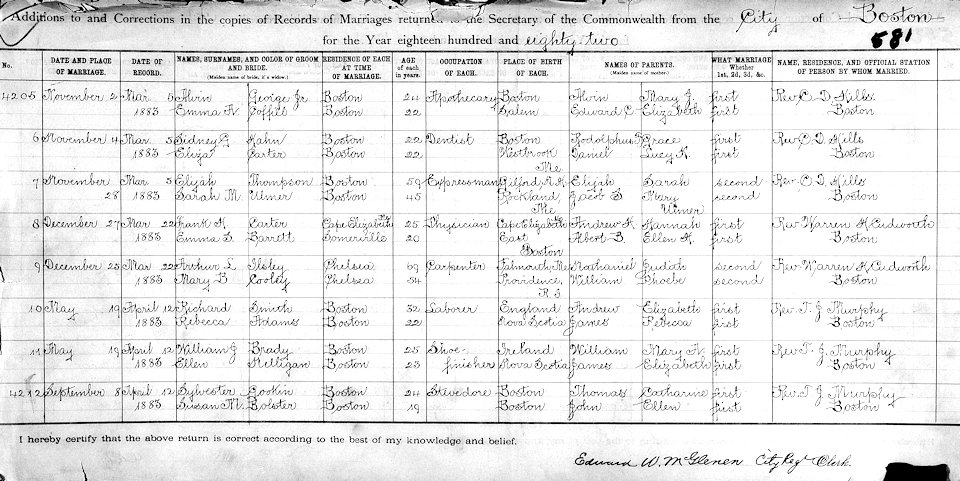 Additions to and Corrections in the copies of Records of Marriages returned to the Secretary of the Commonwealth from the City of Boston
for the Year eighteen hundred and eighty two 581
No. DATE AND PLACE OF MARRIAGE. DATE OF RECORD. NAMES, SURNAMES, AND COLOR OF GROOM AND BRIDE. (Maiden name of bride, if a widow.) RESIDENCE OF EACH AT TIME OF MARRIAGE. AGE of each in years. OCCUPATION OF EACH. PLACE OF BIRTH OF EACH. NAMES OF PARENTS. (Maiden name of mother.) WHAT MARRIAGE Whether 1st, 2d, 3d, &c. NAME, RESIDENCE, AND OFFICIAL STATION OF PERSON BY WHOM MARRIED.
4205 November 2 Mar. 5 Alvin George Jr Boston 24 Apothecary Boston Alvin Mary J. first Rev. O. D. Hills
1883 Emma Coffill Boston 22 Salem Edward C. Elizabeth first Boston
6 November 4 Mar. 5 Sidney Hahn Boston 22 Dentist Boston Grace first Rev. O. D. Hills
1883 Eliza Carter Boston 22 Westbrook Daniel Lucy first Boston
Me
7 November Mar. 5 Elijah Thompson Boston 59 Expressman Gilford N.H. Elijah Sarah second Rev. O. D. Hills
28 1883 Sarah M. Ulmer Boston 45 Rockland Jacob Mary second Boston
Me Ulmer
8 December 27 Mar 22 Frank Carter Cape Elizabeth Me 25 Physician Cape Elizabeth Andrew Hannah first Rev. Warren H. Cudworth
1883 Emma Barrett Somerville 20 East Albert Ellen first Boston
Boston
9 December 25 Mar 22 Arthur L. Ilsley Chelsea 69 Carpenter Falmouth Me Nathaniel Judith second Rev. Warren H. Cudworth
1883 Mary Cooley Chelsea 54 Providence William Phoebe second Boston
R I
10 May 19 April 12 Richard Smith Boston 32 Laborer England Andrew Elizabeth first Rev. T. J. Murphy
1883 Rebecca Adams Boston 22 Nova Scotia James Rebeca first Boston
11 May 19 April 12 William J. Brady Boston 25 Shoe- Ireland William Mary first Rev. T. J. Murphy
1883 Ellen Boston 23 finisher Nova Scotia James Elizabeth first Boston
4212 September 8 April 12 Sylvester Gookin Boston 24 Stevedore Boston Thomas Catharine first Rev. T. J. Murphy
1883 Susan M. Bolster Boston 19 Boston John Ellen first Boston
I hereby certify that the above return is correct according to the best of my knowledge and belief.
Edward W. McGlenen City Reg. Clerk.